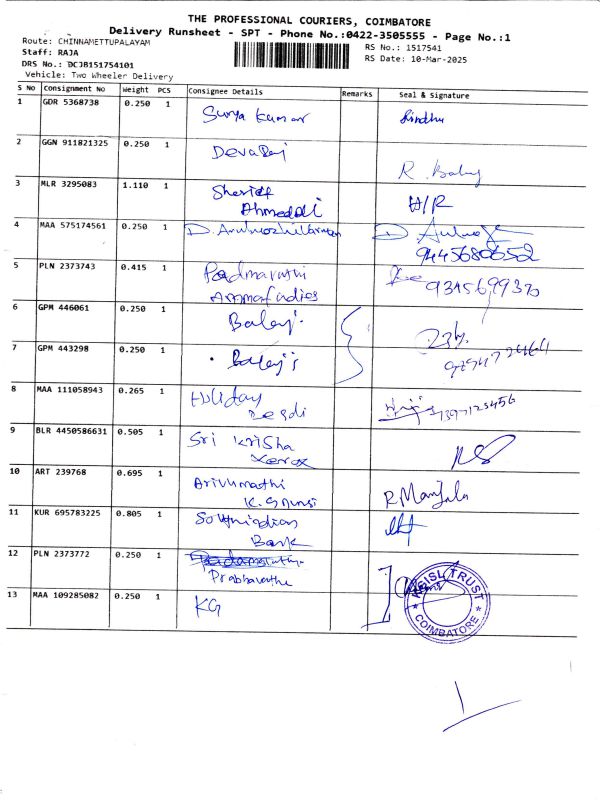 THE PROFESSIONAL COURIERS, COIMBATORE
Delivery Runsheet - SPT - Phone No.:0422-3505555 - Page No.:1
Route: CHINNAMETTUPALAYAM
RS No.: 1517541
Staff: RAJA
RS Date: 10-Mar-2025
DRS No.: DCJB151754101
Vehicle: Two Wheeler Delivery
S No Consignment No Weight PCS Consignee Details Remarks Seal & Signature
1 GDR 5368738 0.250 1 Surya Kumar Sindhu
2 GGN 911821325 0.250 1 Devaraj R. Baby
3 MLR 3295083 1.110 1 Sheriff H/R
Ahmedali
4 MAA 575174561 0.250 1 D.
9445680652
5 PLN 2373743 0.415 1 Padmavathi 9345699370
6 GPM 446061 0.250 1 Balaji
7 GPM 443298 0.250 1 Balaji's
8 MAA 111058943 0.265 1 Holiday
9 BLR 4450586631 0.505 1 Sri Krisha
Xerox
10 ART 239768 0.695 1 Arivumathi R Manjula
11 KUR 695783225 0.805 1 Southindian
Bank
12 PLN 2373772 0.250 1
Prabhavathi
13 MAA 109285082 0.250 1 KG
KGISL TRUST
COIMBATORE